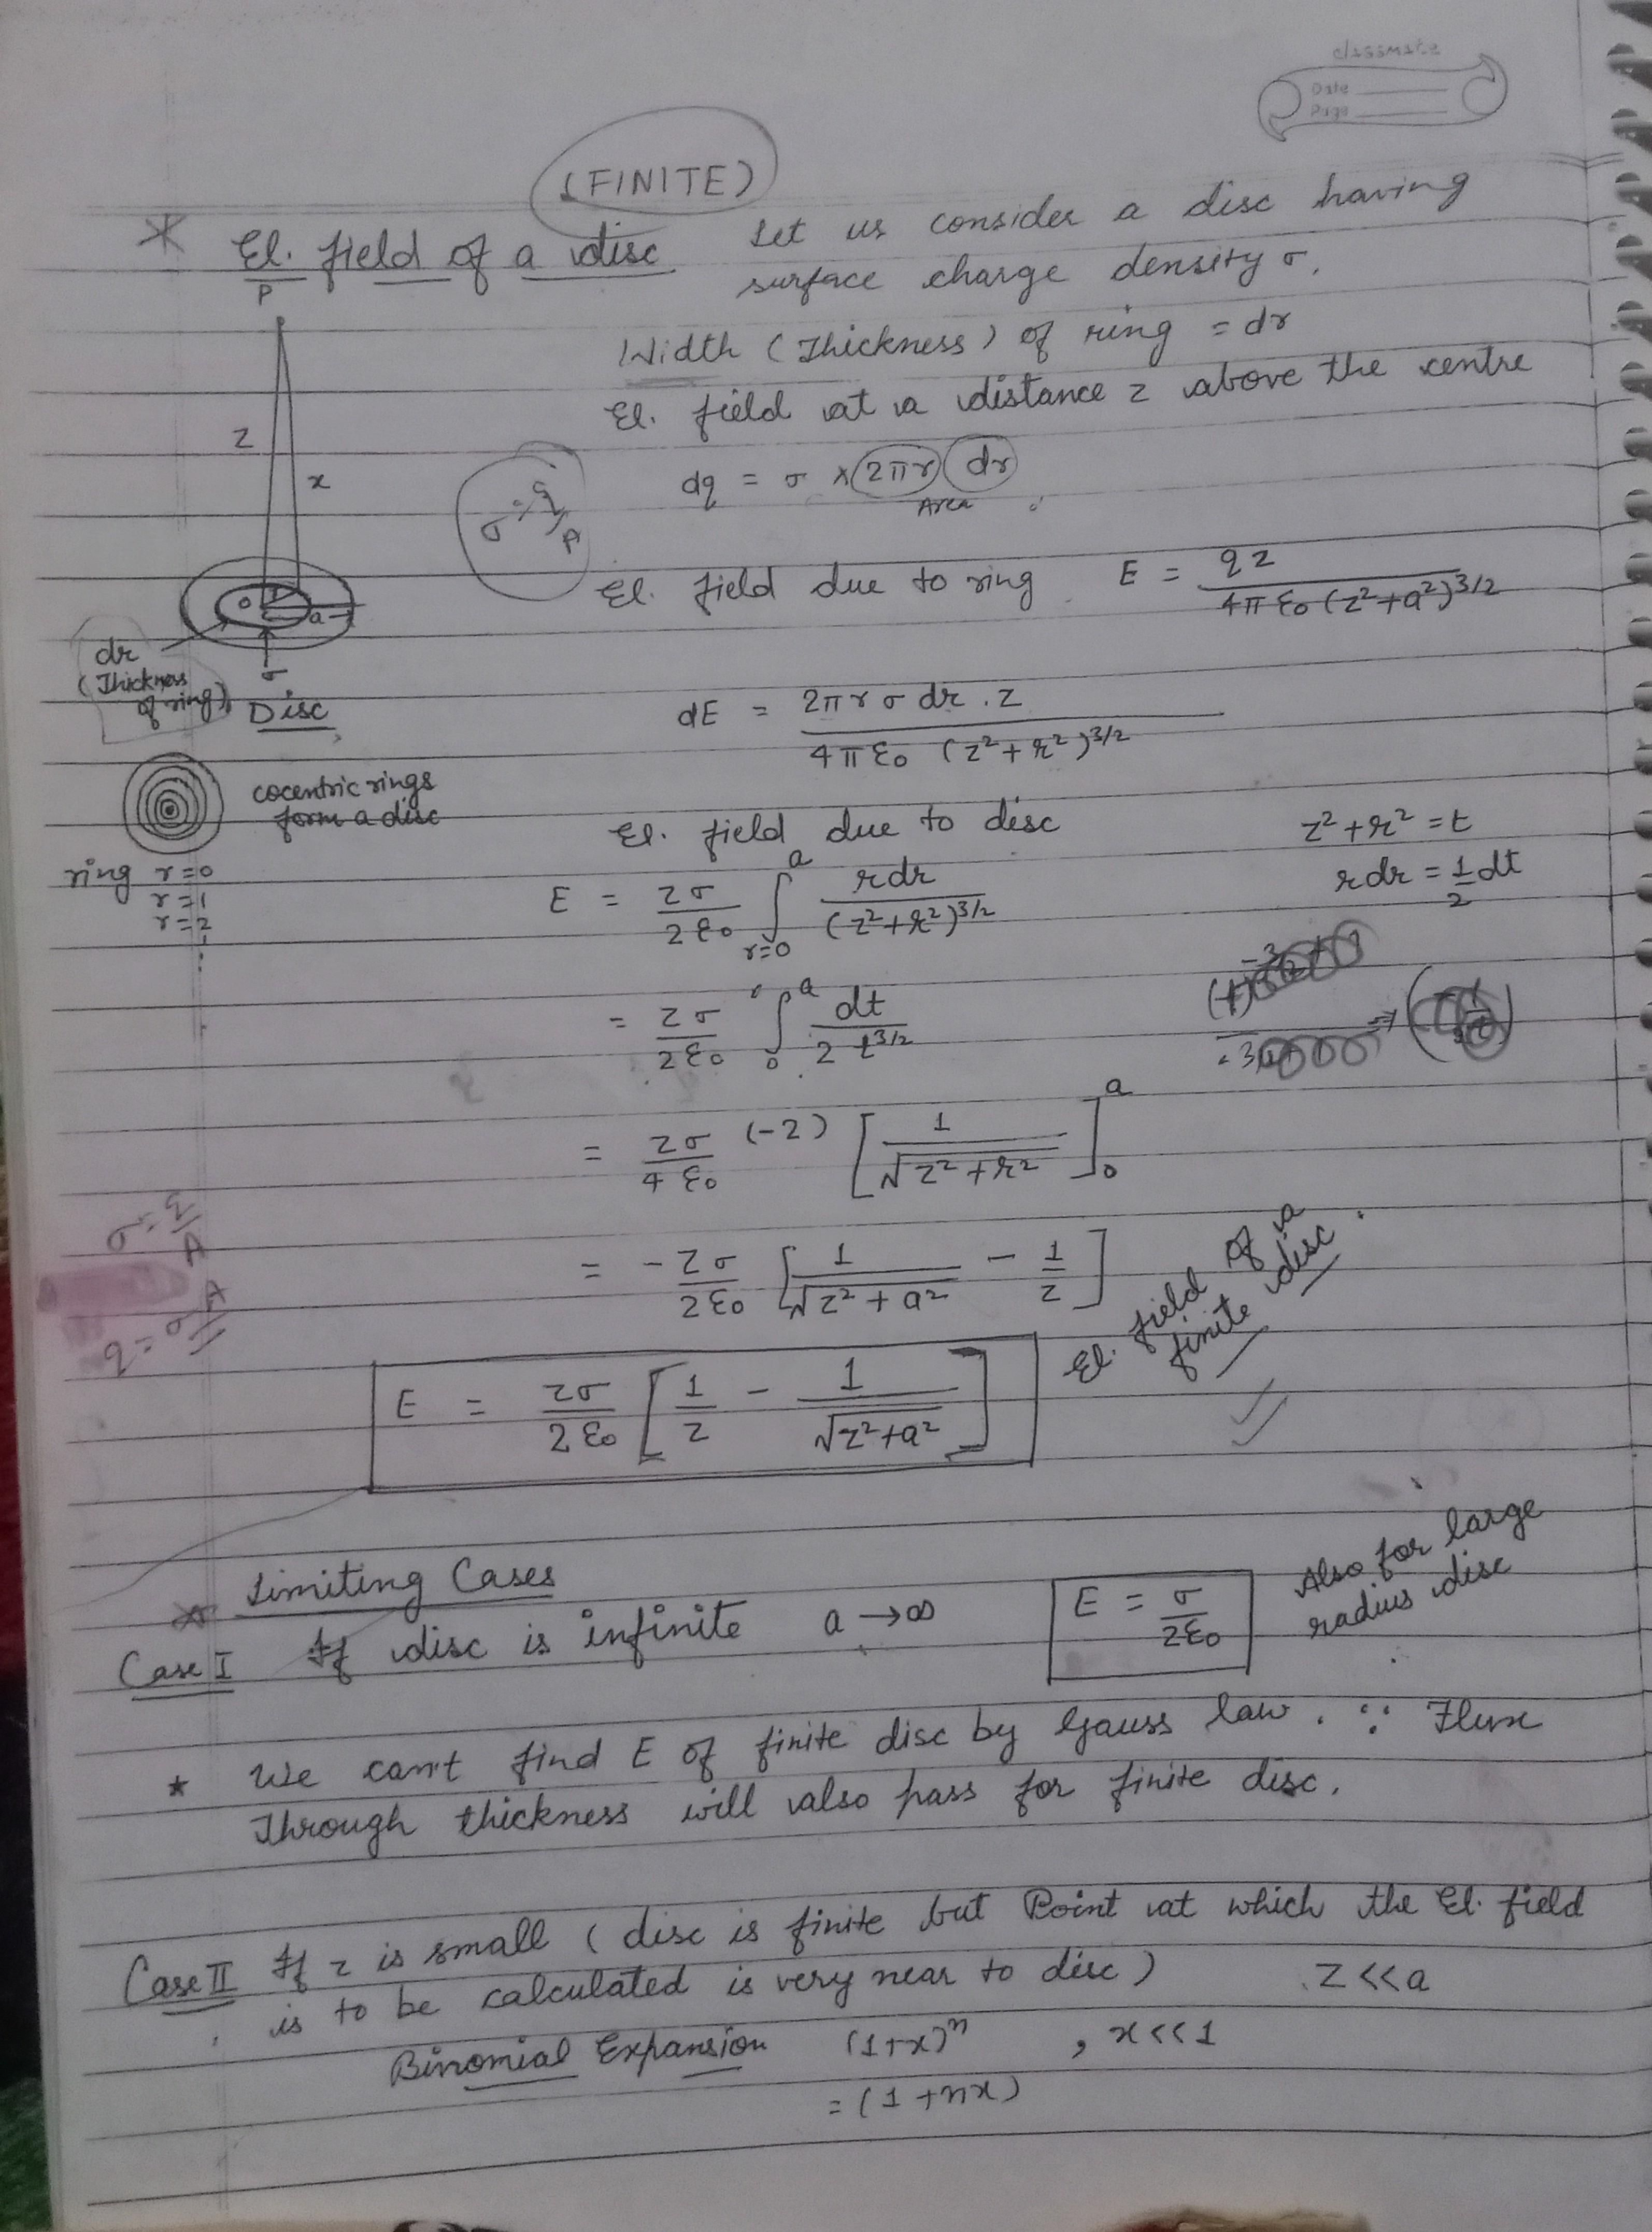 classmate
Date
Page
(FINITE)
* El. field of a disc
Let us consider a disc having
surface charge density σ.
Width (Thickness) of ring = dr
El. field at a distance z above the centre
dq = σ × 2πr dr
Area
σ = q/A
P
z
x
O
r
a
dr
(Thickness
of ring)
σ
Disc
El. field due to ring E = qz / 4πε₀ (z²+a²)^3/2
dE = 2πrσ dr . z / 4πε₀ (z²+r²)^3/2
cocentric rings
form a disc
ring r=0
r=1
r=2
El. field due to disc
z²+r² = t
r dr = 1/2 dt
E = zσ/2ε₀ ∫_{r=0}^{a} rdr/(z²+r²)^3/2
= zσ/2ε₀ ∫_0^a dt/2 t^3/2
= zσ/4ε₀ (-2) [1/√z²+r²]_0^a
σ = q/A
q = σA
= -zσ/2ε₀ [1/√z²+a² - 1/z]
El. field of a
finite disc.
E = zσ/2ε₀ [1/z - 1/√z²+a²]
Limiting Cases
Case I If disc is infinite a → ∞ E = σ/2ε₀
Also for large
radius disc
* We can't find E of finite disc by Gauss law. ∵ Flux
Through thickness will also pass for finite disc.
Case II If z is small (disc is finite but Point at which the El. field
is to be calculated is very near to disc) z<<a
Binomial Expansion (1+x)ⁿ , x<<1
= (1+nx)